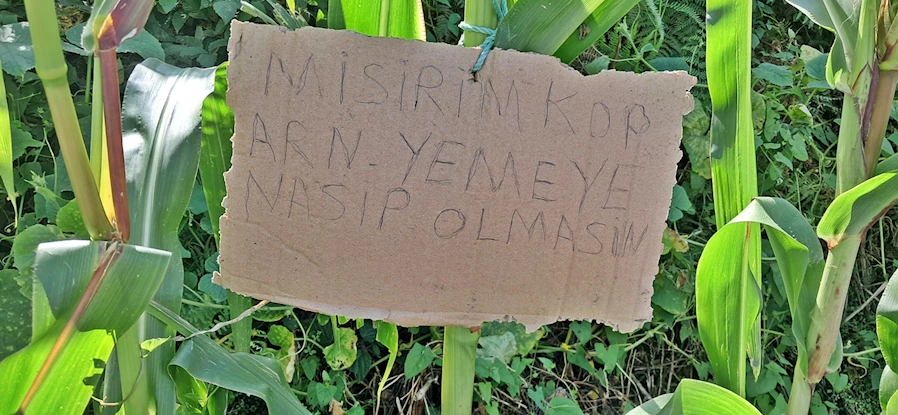 MISIRIM KOP
ARN. YEMEYE
NASIP OLMASIN